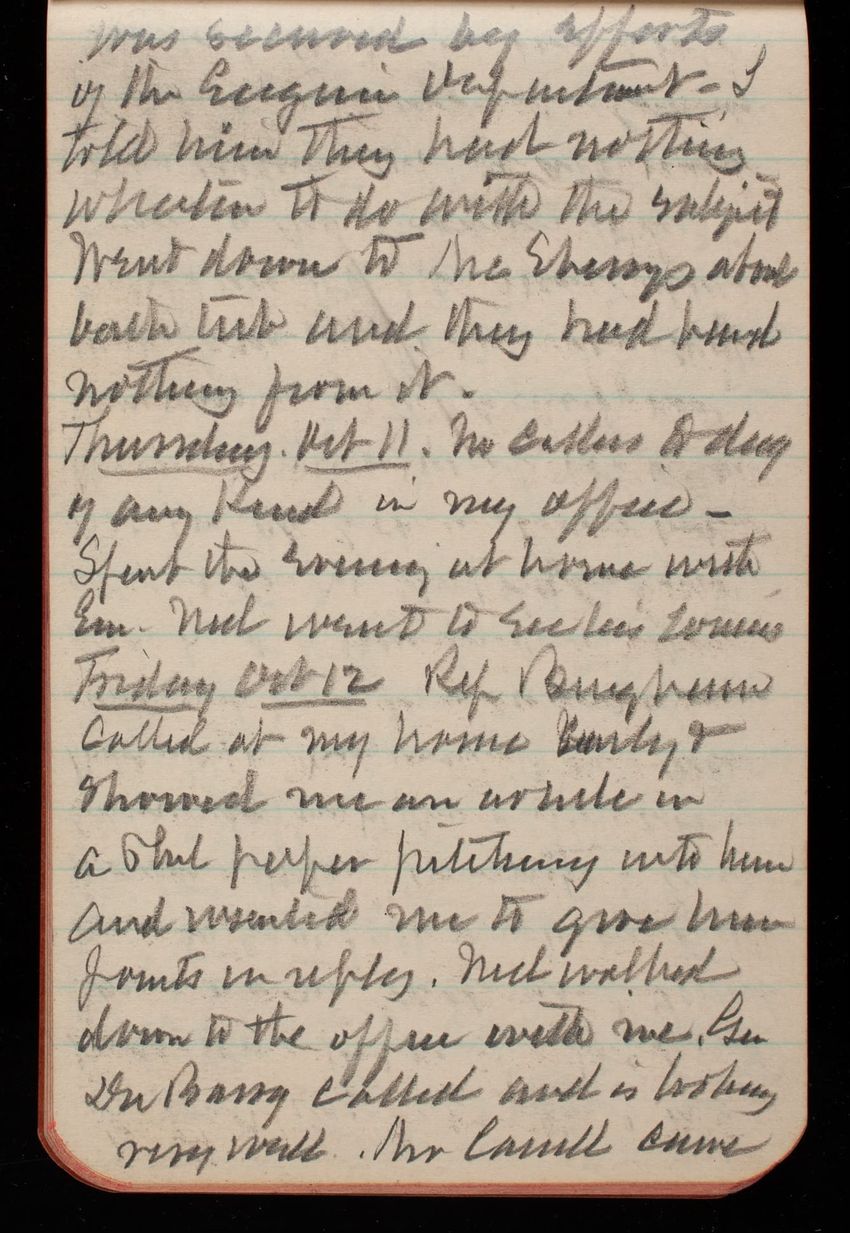 was secured by efforts
of the Engine Department - I
told him they had nothing
whatever to do with the subject
Went down to Mc Sherrys about
bath tub and they had heard
nothing from it.
Thursday. Oct 11. No callers to day
of any kind in my office -
Spent the evening at home with
Em. Ned went to see his
Friday Oct 12 Rep Bingham
called at my home early &
showed me an article in
a Phil paper pitching into him
and wanted me to give him
points in reply. Ned walked
down to the office with me. Gen
DuBarry called and is looking
very well. Mr came